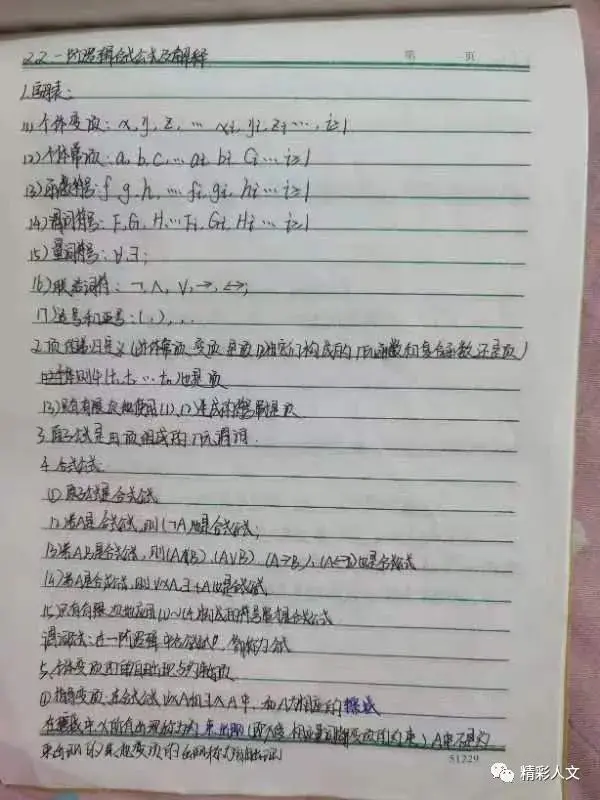 2.2 一阶逻辑合式公式及解释
第 页
1.字母表:
(1)个体变项: x, y, z, … xi, yi, zi …, i≥1
(2)个体常项: a, b, c, … ai, bi, ci … i≥1
(3)函数符号: f, g, h, … fi, gi, hi … i≥1
(4)谓词符号: F, G, H, … Fi, Gi, Hi … i≥1
(5)量词符号: ∀, ∃;
(6)联结词符: ¬, ∧, ∨, →, ↔;
(7)逗号和括号: (, ), , .
2.项 (1)个体常项 变项 是项 (2)构成的 函数和复合函数 还是项)
则 (t, t₂ … tn)也是项
(3)只有有限次地使用(1), (2)生成的符号串是项
3.原子公式是由项组成的n元谓词.
4.合式公式
①原子公式是合式公式
(2)若A是合式公式, 则(¬A)也是合式公式;
(3)若A,B是合式公式, 则(A∧B), (A∨B), (A→B), (A↔B)也是合式公式
(4)若A是合式公式, 则∀xA, ∃xA也是合式公式
(5)只有有限次地应用(1)~(4)构成的符号串是合式公式
谓词公式: 在一阶逻辑中合式公式
5.个体变项的自由出现与约束出现
①指导变项: 在合式公式∀xA和∃xA中, 称A为相应的辖域
在辖域中x所有出现称为约束出现 A中不是约
束出现的其他变项的出现称为自由出现
51229
精彩人文